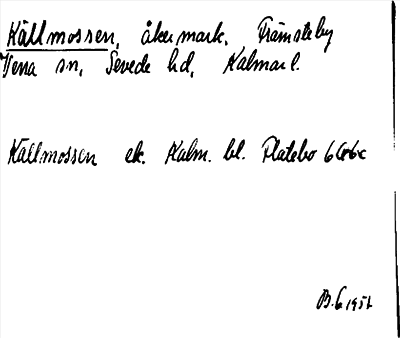 Källmossen, åkermark, Främsteby
Vena sn, Sevede hd, Kalmar l.
Källmossen ek. Kalm. bl. Flatebo 6f6c
B.G 1952